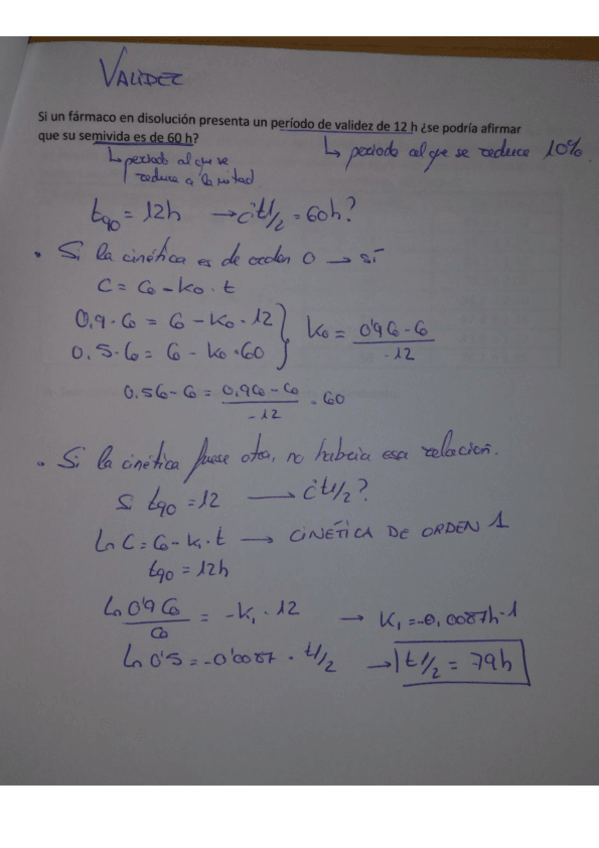 VALIDEZ
Si un fármaco en disolución presenta un período de validez de 12 h ¿se podría afirmar
que su semivida es de 60 h?
↳ periodo al que se reduce 10%.
↳ periodo al que se
reduce a la mitad
t90 = 12h → ¿t1/2 = 60h?
• Si la cinética es de orden 0 → sí
C = C0 - K0 · t
0,9 · C0 = C0 - K0 · 12
0,5 · C0 = C0 - K0 · 60
K0 = 0'9C0 - C0 / -12
0,5C0 - C0 = 0,9C0 - C0 / -12 · 60
• Si la cinética fuese otra, no habría esa relación.
Si t90 = 12 → ¿t1/2?
Ln C = C0 - K1 · t → CINÉTICA DE ORDEN 1
t90 = 12h
Ln 0'9 C0 / C0 = -K1 · 12 → K1 = -0,0087h-1
Ln 0'5 = -0'0087 · t1/2 → t1/2 = 79h